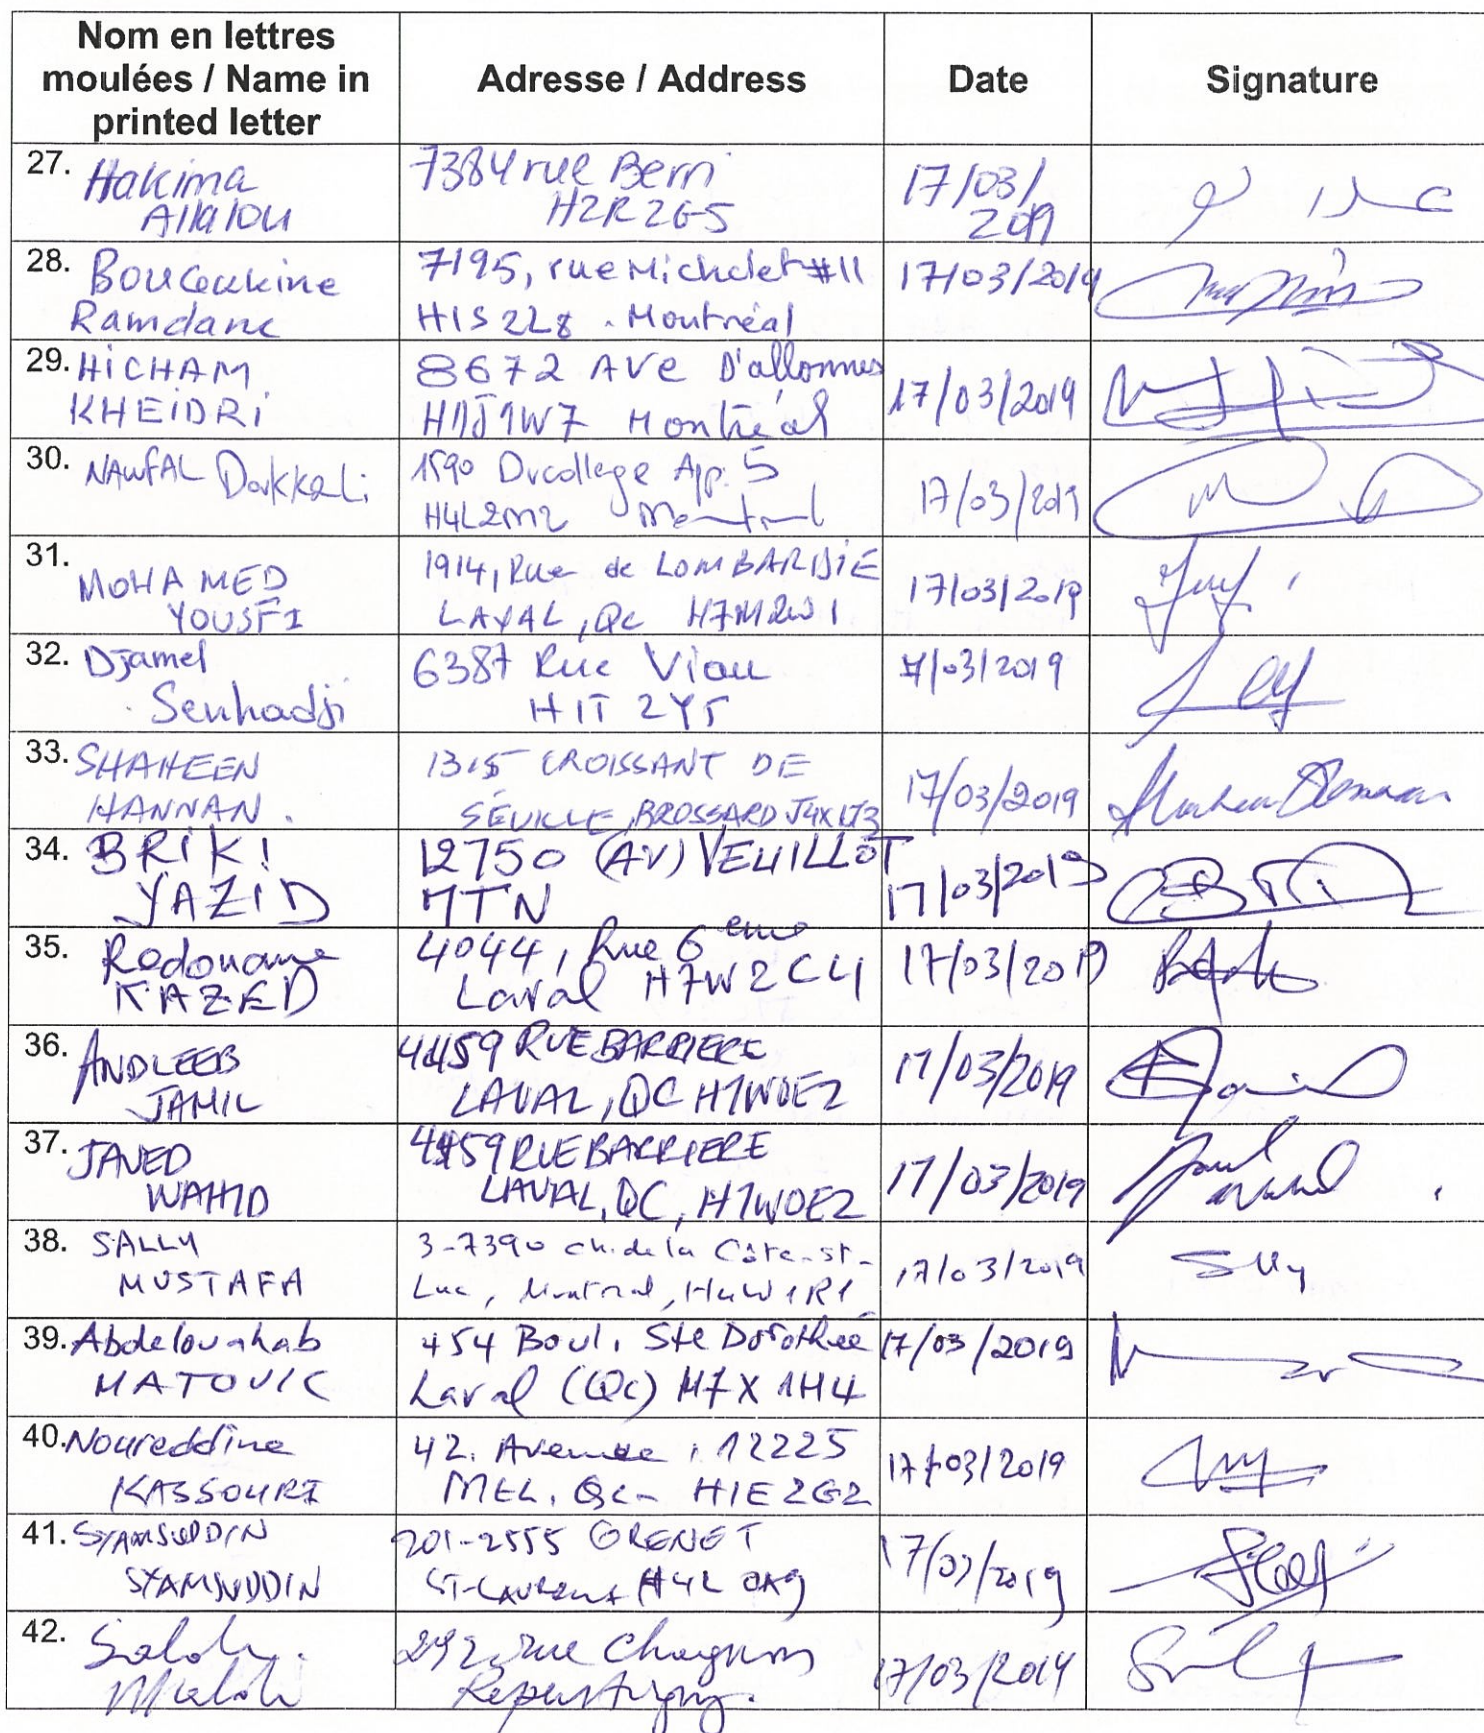 Nom en lettres
moulées / Name in
printed letter
Adresse / Address
Date
Signature
27. Hakima
Allalou
7384 rue Berri
H2R 2G5
17/03/
2019
28. Bouceukine
Ramdane
7195, rue Michelet #11
H1S 2L8 . Montréal
17/03/2019
29. HiCHAM
KHEiDRi
8672 AVe D'allonnes
H1J1W7 Montréal
17/03/2019
30. NAWFAL Dakkali
1590 Ducollege App. 5
H4L2M2 Montreal
17/03/2019
31. MOHAMED
YOUSFI
1914, Rue de LOMBARDiE
LAVAL, Qc H7M2W1
17/03/2019
32. Djamel
Senhadji
6387 Rue Viau
H1T 2Y5
17/03/2019
33. SHAHEEN
HANNAN.
1315 CROISSANT DE
SÉVILLE, BROSSARD J4X1J3
17/03/2019
34. BRiKi
YAZiD
12750 (AV) VEUILLOT
MTN
17/03/2019
35. Redouane
KAZED
4044, Rue 6 eme
Laval H7W2C4
17/03/2019
36. ANDLEEB
JAMIL
4459 RUE BARRIERE
LAVAL, QC H7W0E2
17/03/2019
37. JAVED
WAHID
4459 RUE BARRIERE
LAVAL, QC, H7W0E2
17/03/2019
38. SALLY
MUSTAFA
3-7390 ch. de la Côte-st-
Luc, Montreal, H4W1R1
17/03/2019
Sally
39. Abdelouahab
MATOUK
454 Boul. Ste Dorothée
Laval (Qc) H7X 1H4
17/03/2019
40. Noureddine
KASSOURI
42. Avenue, 12225
MTL, Qc- H1E 2G2
17/03/2019
41. SYAMSUDDIN
SYAMSUDDIN
201-2555 GRENET
ST-LAURENT H4L 0A9
17/03/2019
42. Salah
292, rue Chagnon
Repentigny.
17/03/2019